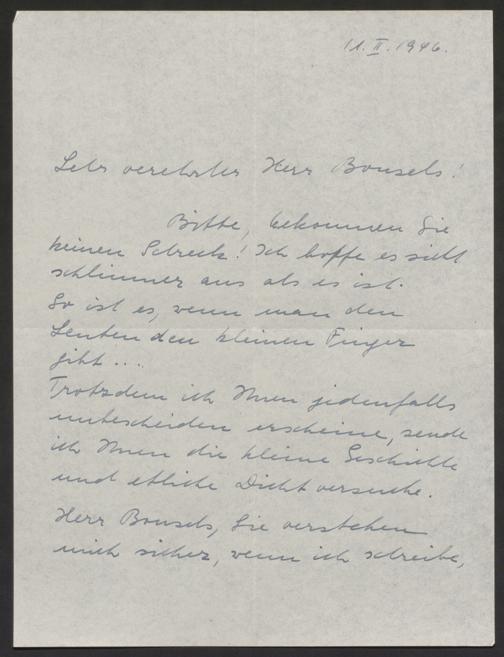 11.II.1946.
Sehr verehrter Herr Bonsels!
Bitte, bekommen Sie
keinen Schreck! Ich hoffe es sieht
schlimmer aus als es ist.
So ist es, wenn man den
Leuten den kleinen Finger
gibt ...
Trotzdem ich Ihnen jedenfalls
unbescheiden erscheine, sende
ich Ihnen die kleine Geschichte
und etliche Dichtversuche.
Herr Bonsels, Sie verstehen
mich sicher, wenn ich schreibe,